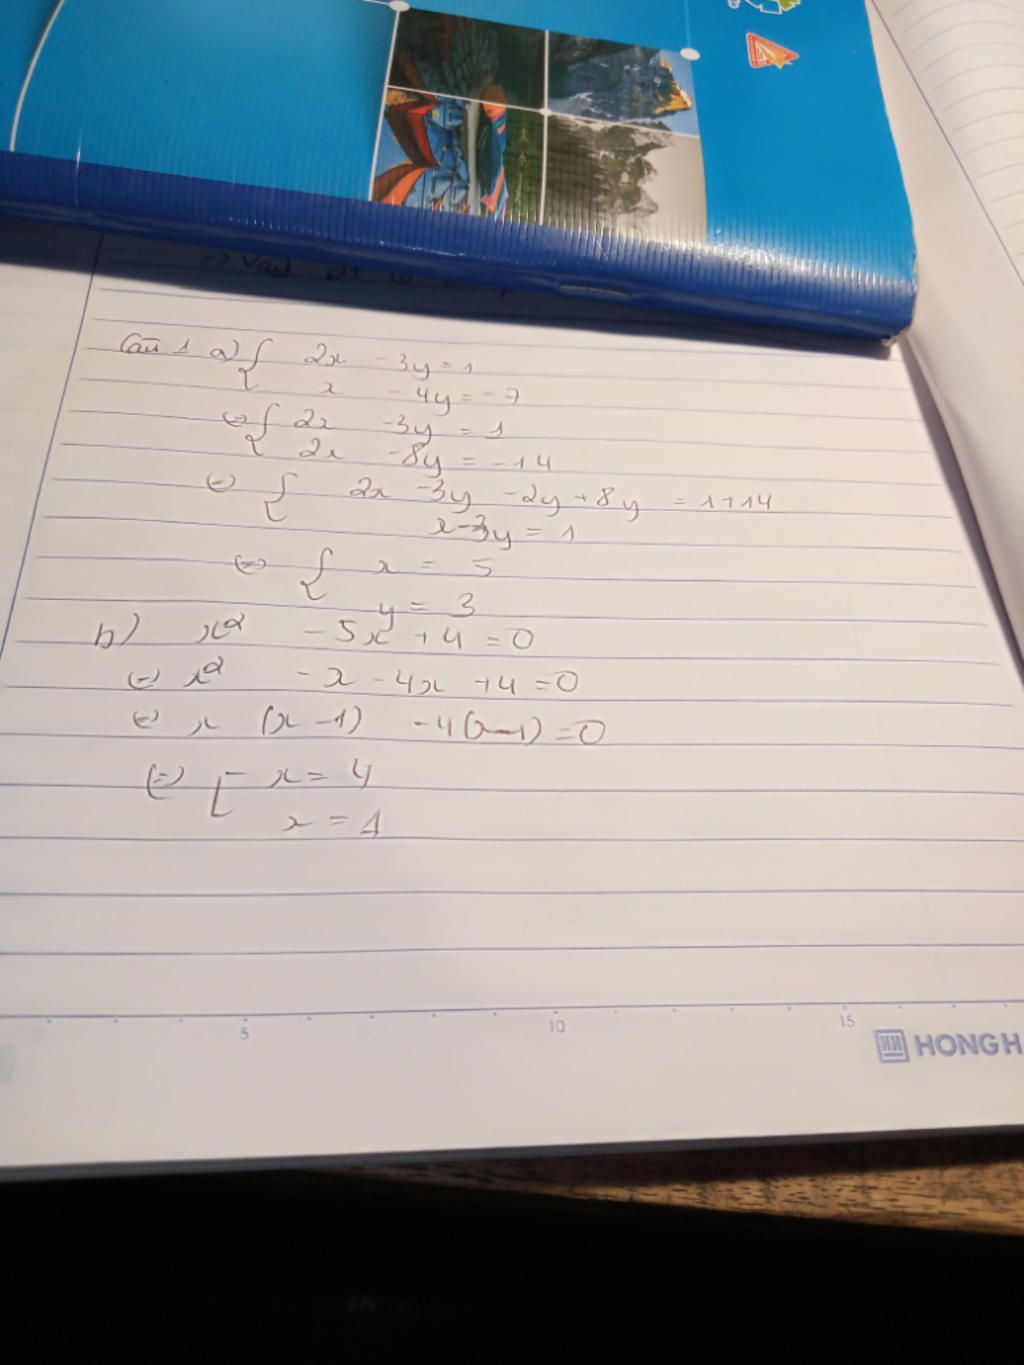 Câu 1 a) { 2x - 3y = 1
x - 4y = -7
⇔ { 2x - 3y = 1
2x - 8y = -14
⇔ { 2x - 3y - 2y + 8y = 1 + 14
x - 3y = 1
⇔ { x = 5
y = 3
b) x² - 5x + 4 = 0
⇔ x² - x - 4x + 4 = 0
⇔ x (x - 1) - 4(x - 1) = 0
⇔ [ x = 4
x = 1
5 10 15
HONG H